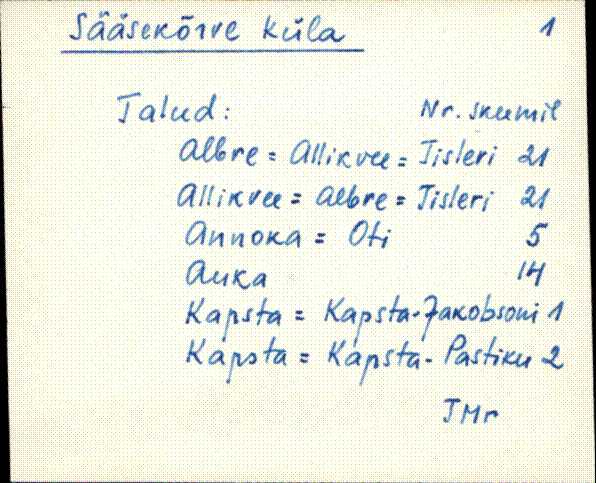 Sääsekõrve küla 1
Talud: Nr. skeemil
Albre = Allikvee = Tisleri 21
Allikvee = Albre = Tisleri 21
Annoka = Oti 5
Auka 14
Kapsta = Kapsta-Jakobsoni 1
Kapsta = Kapsta-Pastiku 2
JMr